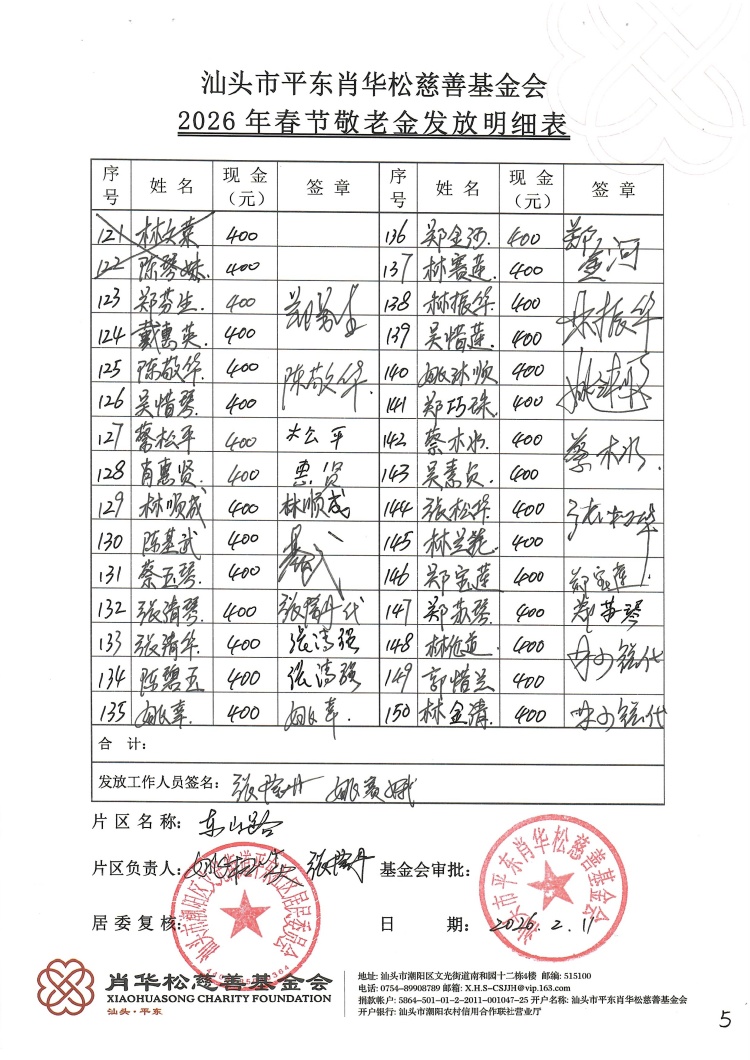 汕头市平东肖华松慈善基金会
2026年春节敬老金发放明细表
序号 姓名 现金（元） 签章 序号 姓名 现金（元） 签章
121 林文菜 400 136 郑金河 400 郑金河
122 陈琴妹 400 137 林赛莲 400
123 郑芬生 400 郑芬生 138 林振华 400 林振华
124 戴惠英 400 139 吴惜莲 400
125 陈敬华 400 陈敬华 140 姚沐顺 400
126 吴惜琴 400 141 郑巧珠 400
127 蔡松平 400 松平 142 蔡木水 400 蔡木水
128 肖惠贤 400 惠贤 143 吴素贞 400
129 林顺成 400 林顺成 144 张松华 400
130 陈基武 400 145 林兰菀 400
131 蔡玉琴 400 146 郑宝莲 400 郑宝莲
132 张清琴 400 张瑞丹代 147 郑苏琴 400 郑苏琴
133 张清华 400 张清强 148 400
134 陈碧玉 400 张清强 149 郭惜兰 400
135 姚辜 400 姚辜 150 林金清 400
合计：
发放工作人员签名：张瑞丹 姚
片区名称：东山路
片区负责人： 张瑞丹 基金会审批：
居委复核： 日期：2026.2.11
汕头市平东肖华松慈善基金会
肖华松慈善基金会
XIAOHUASONG CHARITY FOUNDATION
汕头·平东
地址：汕头市潮阳区文光街道南和园十二栋4楼 邮编：515100
电话：0754-89908789 邮箱：X.H.S-CSJJH@vip.163.com
捐款帐户：5864-501-01-2-2011-001047-25 开户名称：汕头市平东肖华松慈善基金会
开户银行：汕头市潮阳农村信用合作联社营业厅
5